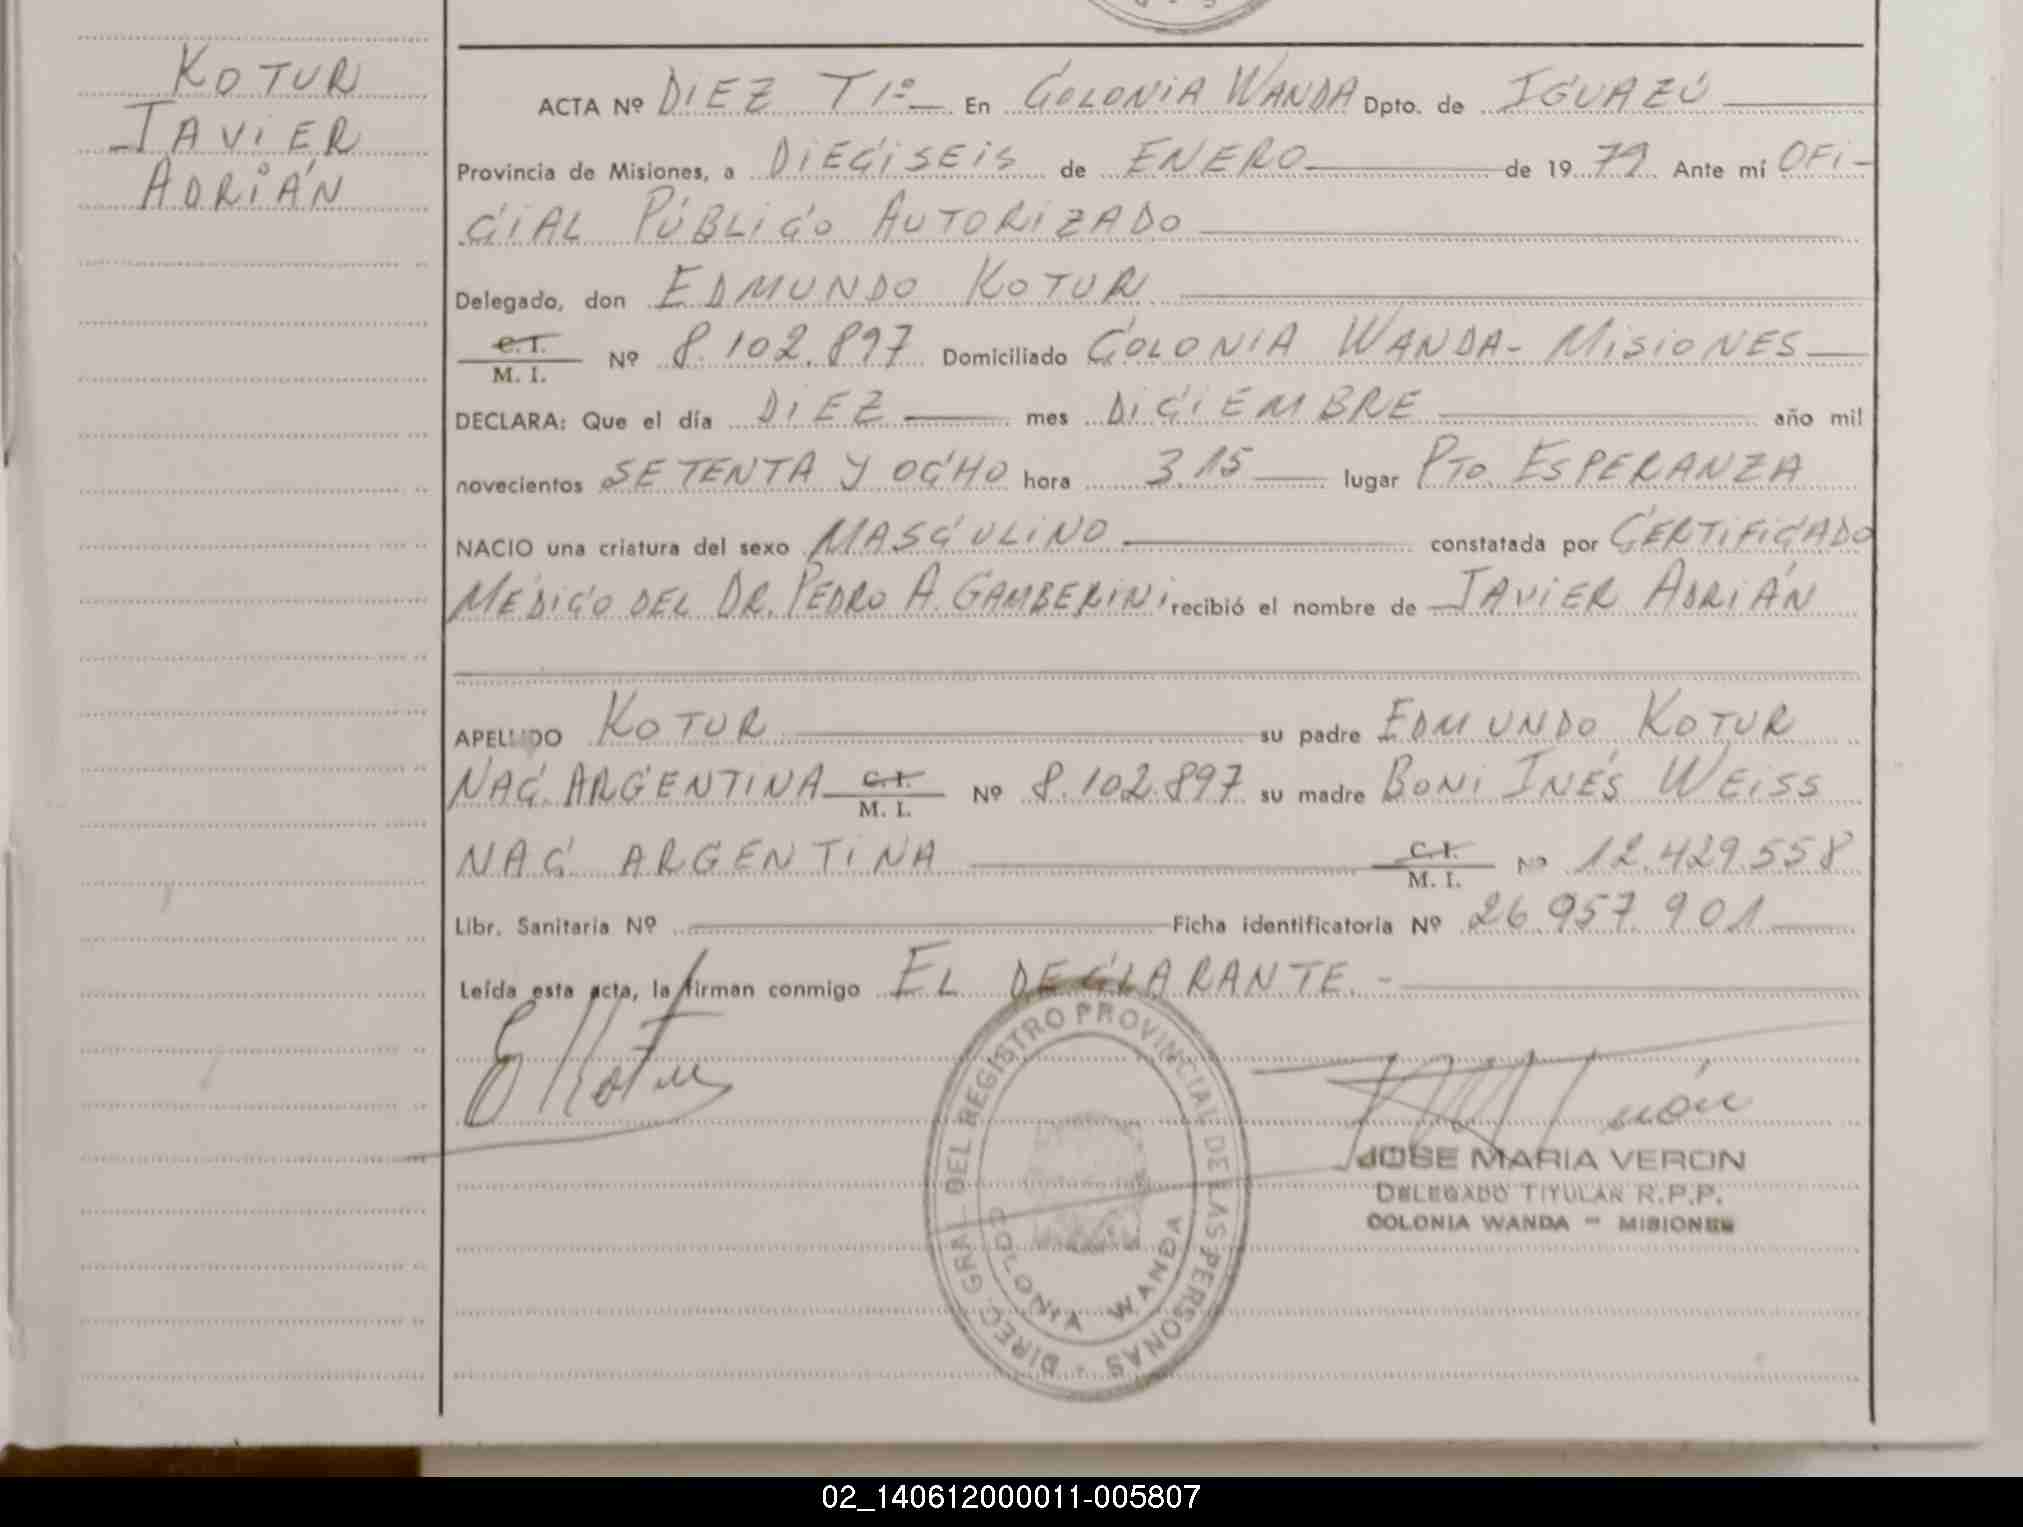 KOTUR
JAVIER
ADRIÁN
ACTA Nº DIEZ Tº En COLONIA WANDA Dpto. de IGUAZÚ
Provincia de Misiones, a DIECISEIS de ENERO de 1979 Ante mí OFI-
CIAL PÚBLICO AUTORIZADO
Delegado, don EDMUNDO KOTUR
C. I.
M. I. Nº 8.102.897 Domiciliado COLONIA WANDA - MISIONES
DECLARA: Que el día DIEZ mes DICIEMBRE año mil
novecientos SETENTA Y OCHO hora 3.15 lugar PTO. ESPERANZA
NACIO una criatura del sexo MASCULINO constatada por CERTIFICADO
MÉDICO DEL DR. PEDRO A. GAMBERINI recibió el nombre de JAVIER ADRIÁN
APELLIDO KOTUR su padre EDMUNDO KOTUR
NAC. ARGENTINA C. I. M. I. Nº 8.102.897 su madre BONI INÉS WEISS
NAC. ARGENTINA C. I. M. I. Nº 12.429.558
Libr. Sanitaria Nº Ficha identificatoria Nº 26.957.901
Leída esta acta, la firman conmigo EL DECLARANTE.-
E Kotur
DIREC. GRAL. DEL REGISTRO PROVINCIAL DE LAS PERSONAS
COLONIA WANDA
JOSE MARIA VERON
DELEGADO TITULAR R.P.P.
COLONIA WANDA - MISIONES
02_140612000011-005807